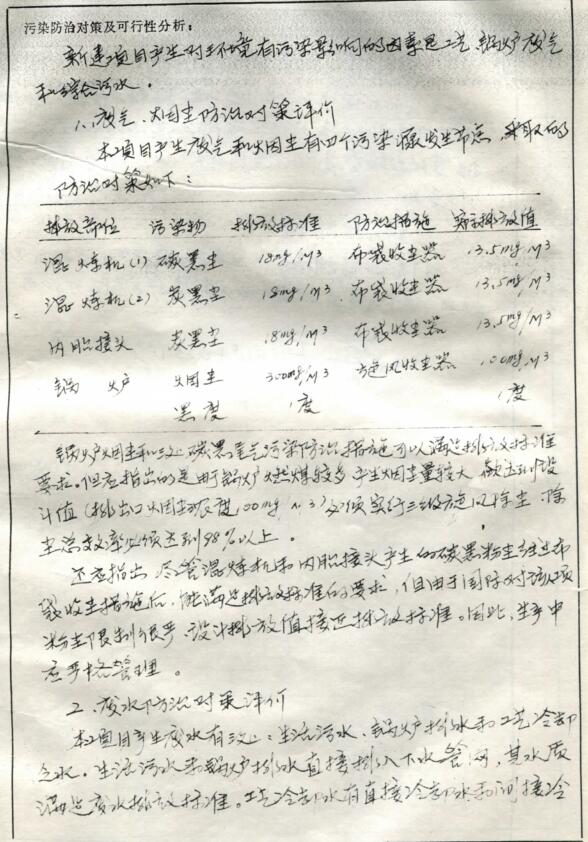 污染防治对策及可行性分析：
新建项目产生对环境有污染影响的因素是工艺、锅炉废气
和综合污水。
1、废气、烟囱尘防治对策评价
本项目产生废气和烟囱尘有四个污染源发生节点，采取的
防治对策如下：
排放部位 污染物 排放标准 防治措施 实际排放值
混炼机(1) 碳黑尘 18mg/M³ 布袋收尘器 13.5mg/M³
混炼机(2) 炭黑尘 18mg/M³ 布袋收尘器 13.5mg/M³
内胎接头 炭黑尘 18mg/M³ 布袋收尘器 13.5mg/M³
锅炉 烟囱尘 300mg/M³ 旋风收尘器 100mg/M³
黑度 1度 1度
锅炉烟囱尘和三个碳黑尾气污染防治措施可以满足排放标准
要求。但应指出的是由于锅炉燃煤较多产生烟囱尘量较大，欲达到设
计值（排出口烟囱尘浓度100mg/M³）必须实行三级旋风除尘，除
尘总效率必须达到98%以上。
还应指出，尽管混炼机和内胎接头产生的碳黑粉尘经过布
袋收尘措施后，能满足排放标准的要求，但由于国际对该项
粉尘限制很严，设计排放值接近排放标准。因此，生产中
应严格管理。
二、废水防治对策评价
本项目产生废水有三个：生活污水、锅炉排水和工艺冷却
水。生活污水和锅炉排水直接排入下水管网，其水质
满足废水排放标准。工艺冷却水有直接冷却水和间接冷